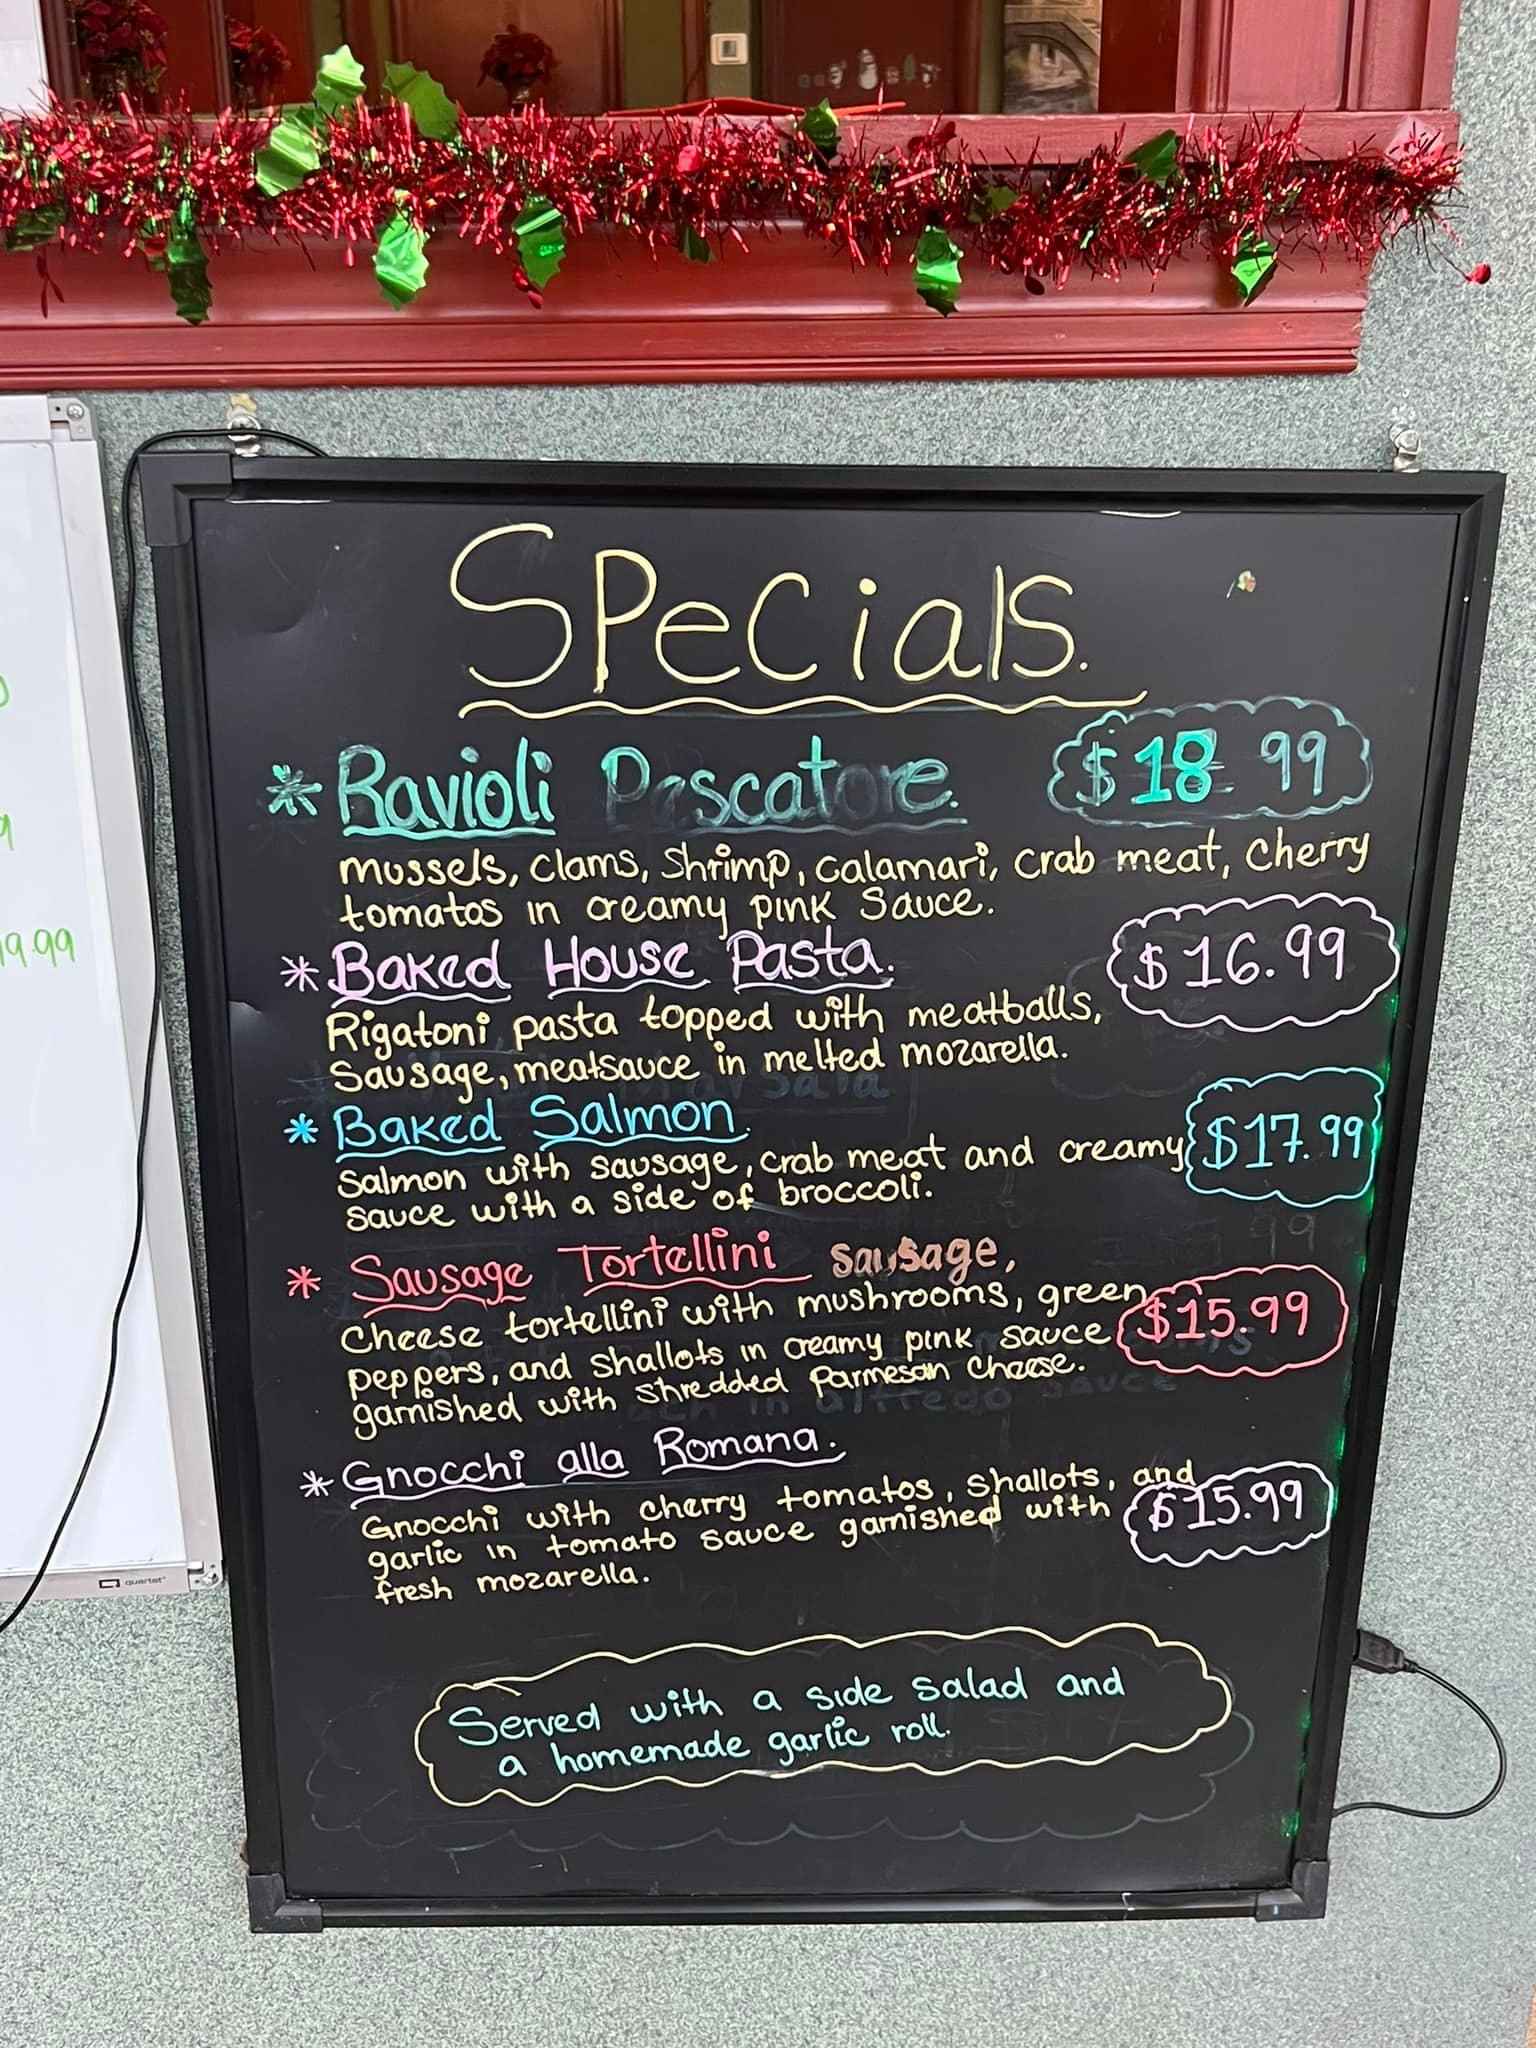 Specials.
* Ravioli Pescatore. $18 99
mussels, clams, shrimp, calamari, crab meat, cherry
tomatos in creamy pink sauce.
* Baked House Pasta. $16.99
Rigatoni pasta topped with meatballs,
sausage, meatsauce in melted mozarella.
* Baked Salmon. $17.99
Salmon with sausage, crab meat and creamy
sauce with a side of broccoli.
* Sausage Tortellini sausage,
Cheese tortellini with mushrooms, green $15.99
peppers, and shallots in creamy pink sauce
garnished with shredded Parmesan Cheese.
* Gnocchi alla Romana.
Gnocchi with cherry tomatos, shallots, and $15.99
garlic in tomato sauce garnished with
fresh mozarella.
Served with a side salad and
a homemade garlic roll.
9.99
quartet